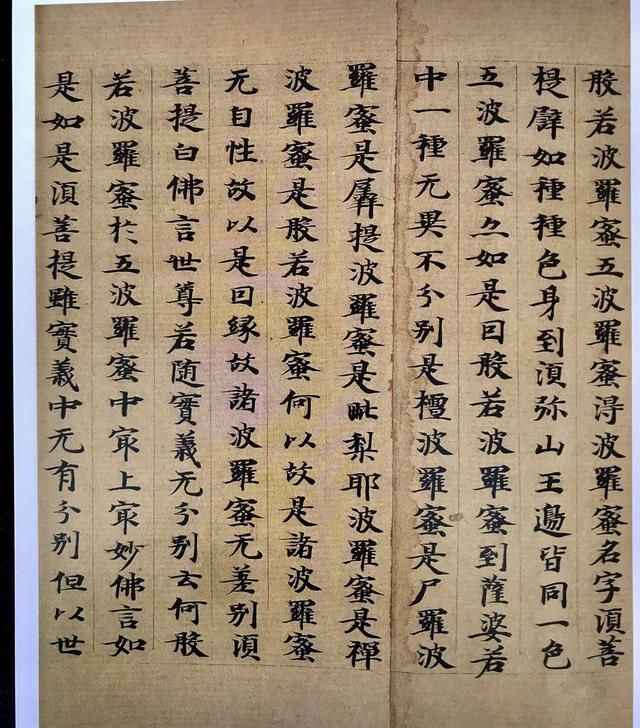 般若波羅蜜五波羅蜜淂波羅蜜名字湏菩
提辟如種種色身到湏弥山王邊皆同一色
五波羅蜜亦如是囙般若波羅蜜到薩婆若
中一種无異不分別是檀波羅蜜是尸羅波
羅蜜是羼提波羅蜜是毗梨耶波羅蜜是禪
波羅蜜是般若波羅蜜何以故是諸波羅蜜
无自性故以是囙縁故諸波羅蜜无差別湏
菩提白佛言世尊若随寶義无分別云何般
若波羅蜜扵五波羅蜜中冣上冣妙佛言如
是如是湏菩提雖寶義中无有分別但以世